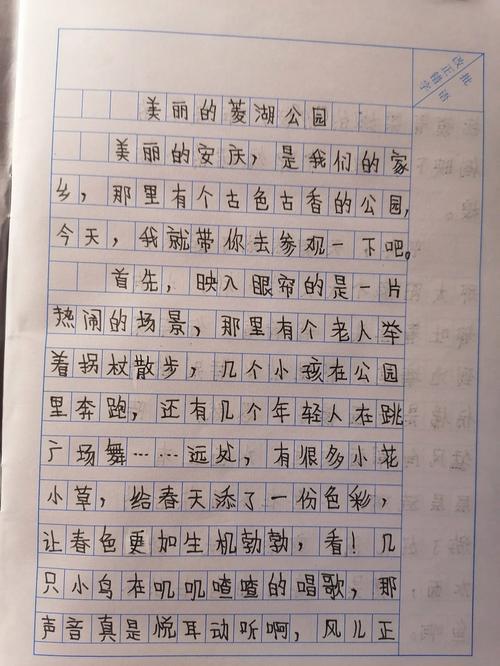 批语
改正错字
美丽的菱湖公园
美丽的安庆，是我们的家
乡，那里有个古色古香的公园，
今天，我就带你去参观一下吧。
首先，映入眼帘的是一片
热闹的场景，那里有个老人举
着拐杖散步，几个小孩在公园
里奔跑，还有几个年轻人在跳
广场舞……远处，有很多小花
小草，给春天添了一份色彩，
让春色更加生机勃勃，看！几
只小鸟在叽叽喳喳的唱歌，那
声音真是悦耳动听啊，风儿正